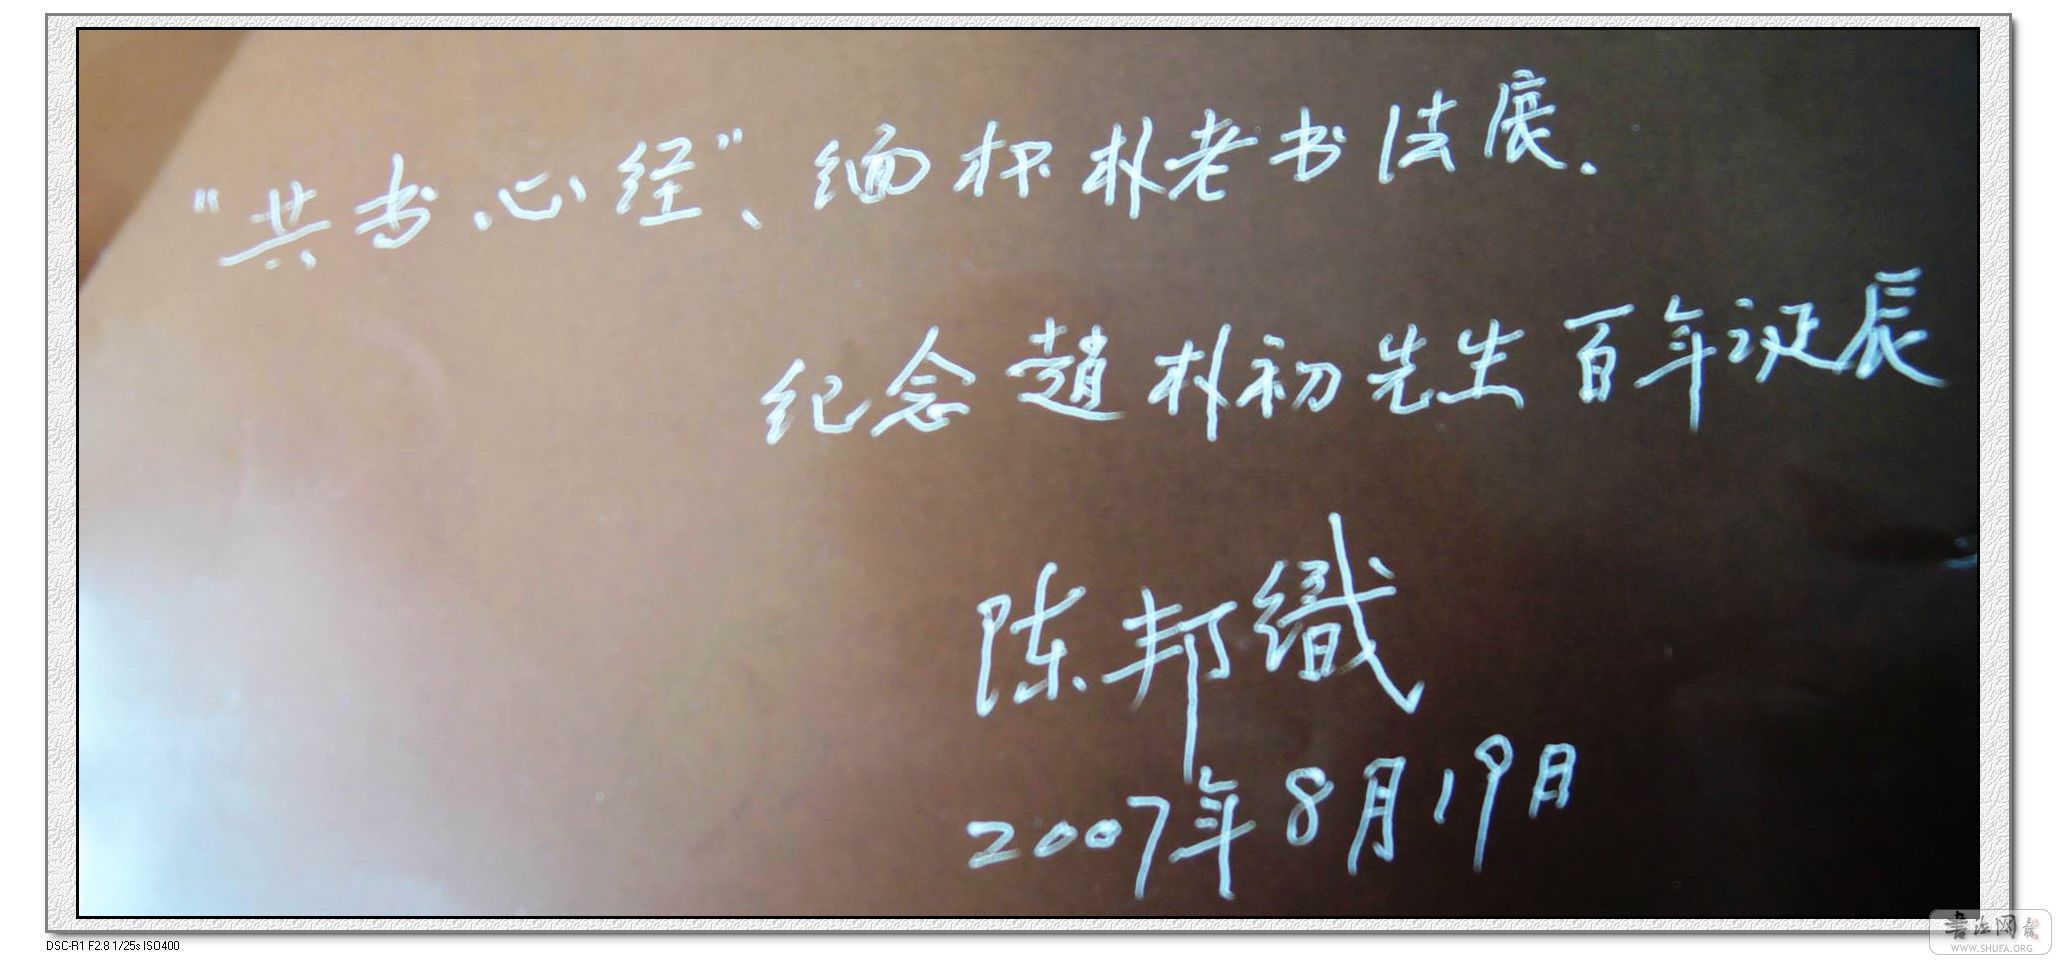 “共书心经”、缅怀朴老书法展.
纪念趙朴初先生百年诞辰
陈邦織
2007年8月19日
DSC-R1 F2.8 1/25s ISO400
書法网
WWW.SHUFA.ORG